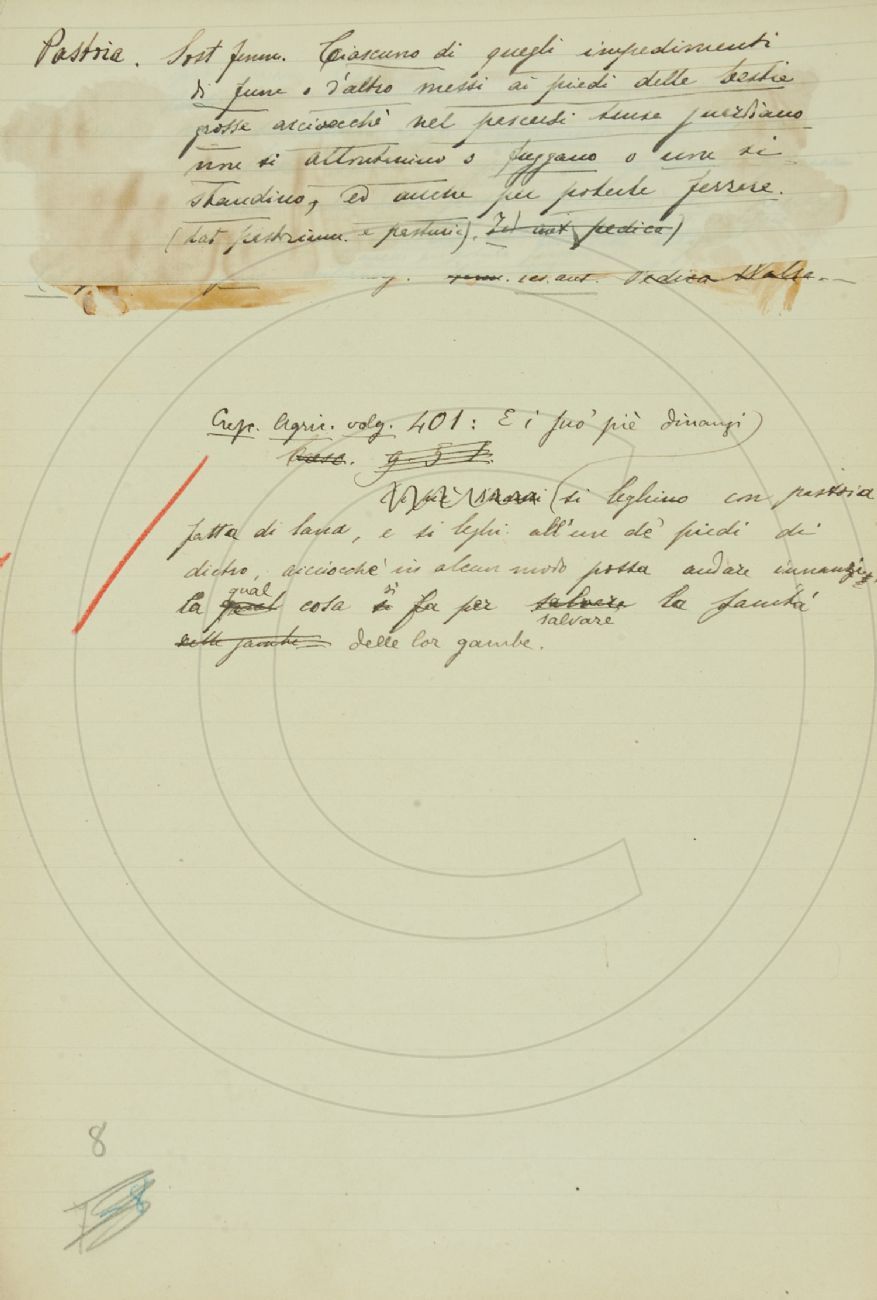 Pastoia. Sost. femm. Ciascuno di quegli impedimenti
di fune o d'altro messi ai piedi delle bestie
grosse acciocchè nel pascersi senza guardiano
non si allontanino o fuggano o non si
sbandino, ed anche per poterle ferrare.
(Lat. e pasturia). pedica)
ies. ant. Pedica
Cresc. Agric. volg. 401: E i suo' piè dinanzi
9. 51.
dinanzi (si leghino con pastoia
fatta di lana, e si leghi all'un de' piedi di
dietro, acciocchè in alcun modo possa andare innanzi;
qual
si
la quel cosa si fa per salvere la sanità
salvare
delle gambe delle lor gambe.
8